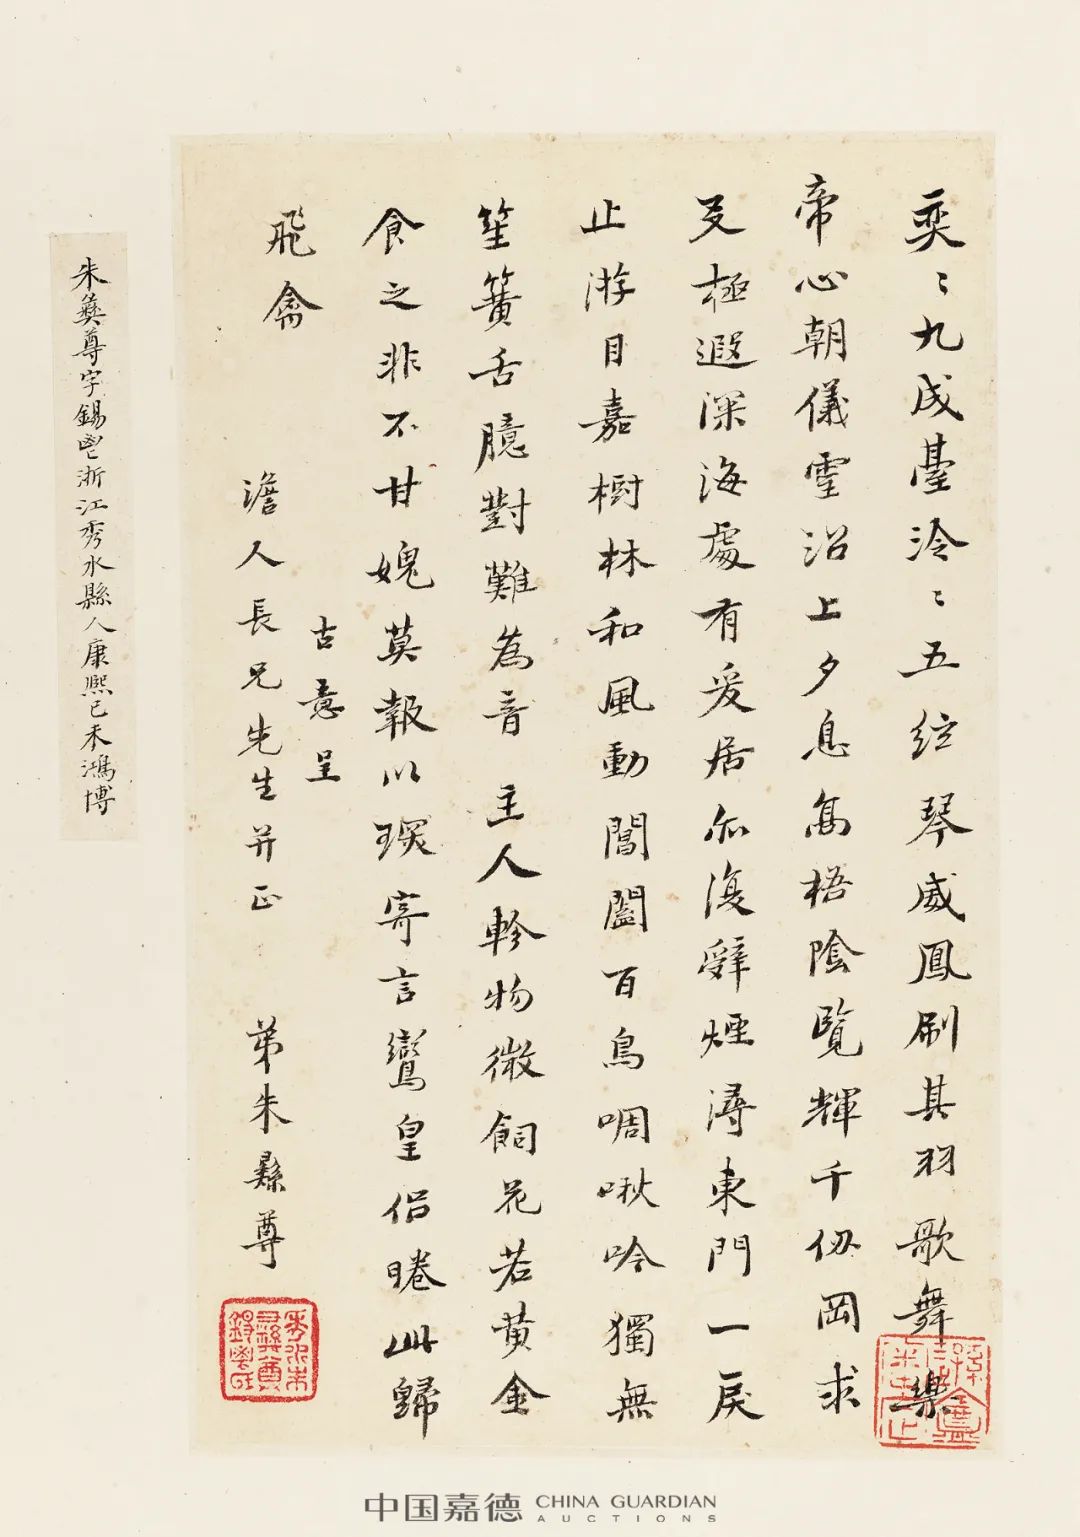 奕〻九成臺泠〻五絃琴威鳳刷其羽歌舞樂
帝心朝儀靈沼上夕息高梧陰覽輝千仞岡求
友極遐深海處有爰居亦復辭煙潯東門一戾
止游目嘉樹林和風動閶闔百鳥啁啾吟獨無
笙簧舌臆對難為音主人軫物微飼花若黄金
食之非不甘媿莫報以琛寄言鸞皇侣睠此歸
飛禽
古意呈
澹人長兄先生并正 弟朱彝尊
朱彝尊字錫鬯浙江秀水縣人康熙己未鴻博
秀水朱彝尊錫鬯氏
中国嘉德 CHINA GUARDIAN
AUCTIONS